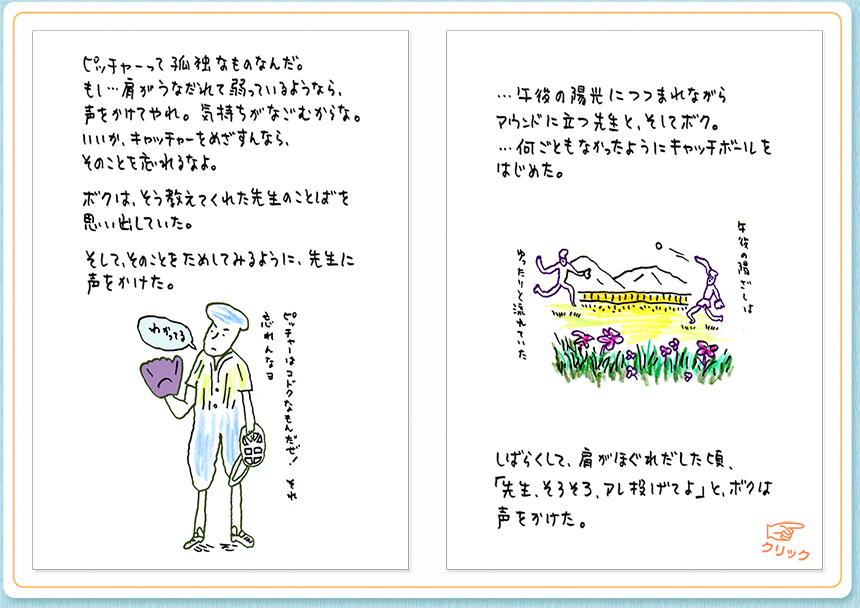 ピッチャーって孤独なものなんだ。
もし…肩がうなだれて弱っているようなら、
声をかけてやれ。気持ちがなごむからな。
いいか、キャッチャーをめざすんなら、
そのことを忘れるなよ。
ボクは、そう教えてくれた先生のことばを
思い出していた。
そして、そのことをためしてみるように、先生に
声をかけた。
わかってる
ピッチャーはコドクなもんだぜ！ それ
忘れんなヨ
…午後の陽光につつまれながら
マウンドに立つ先生と、そしてボク。
…何ごともなかったようにキャッチボールを
はじめた。
午後の陽ざしは
ゆったりと流れていた
しばらくして、肩がほぐれだした頃、
「先生、そろそろ、アレ投げてよ」と、ボクは
声をかけた。
クリック